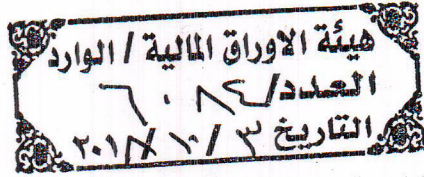 هيئة الاوراق المالية / الوارد
العدد / ٦٠٨٤
التاريخ ٣ / ١٠ / ٢٠١٨